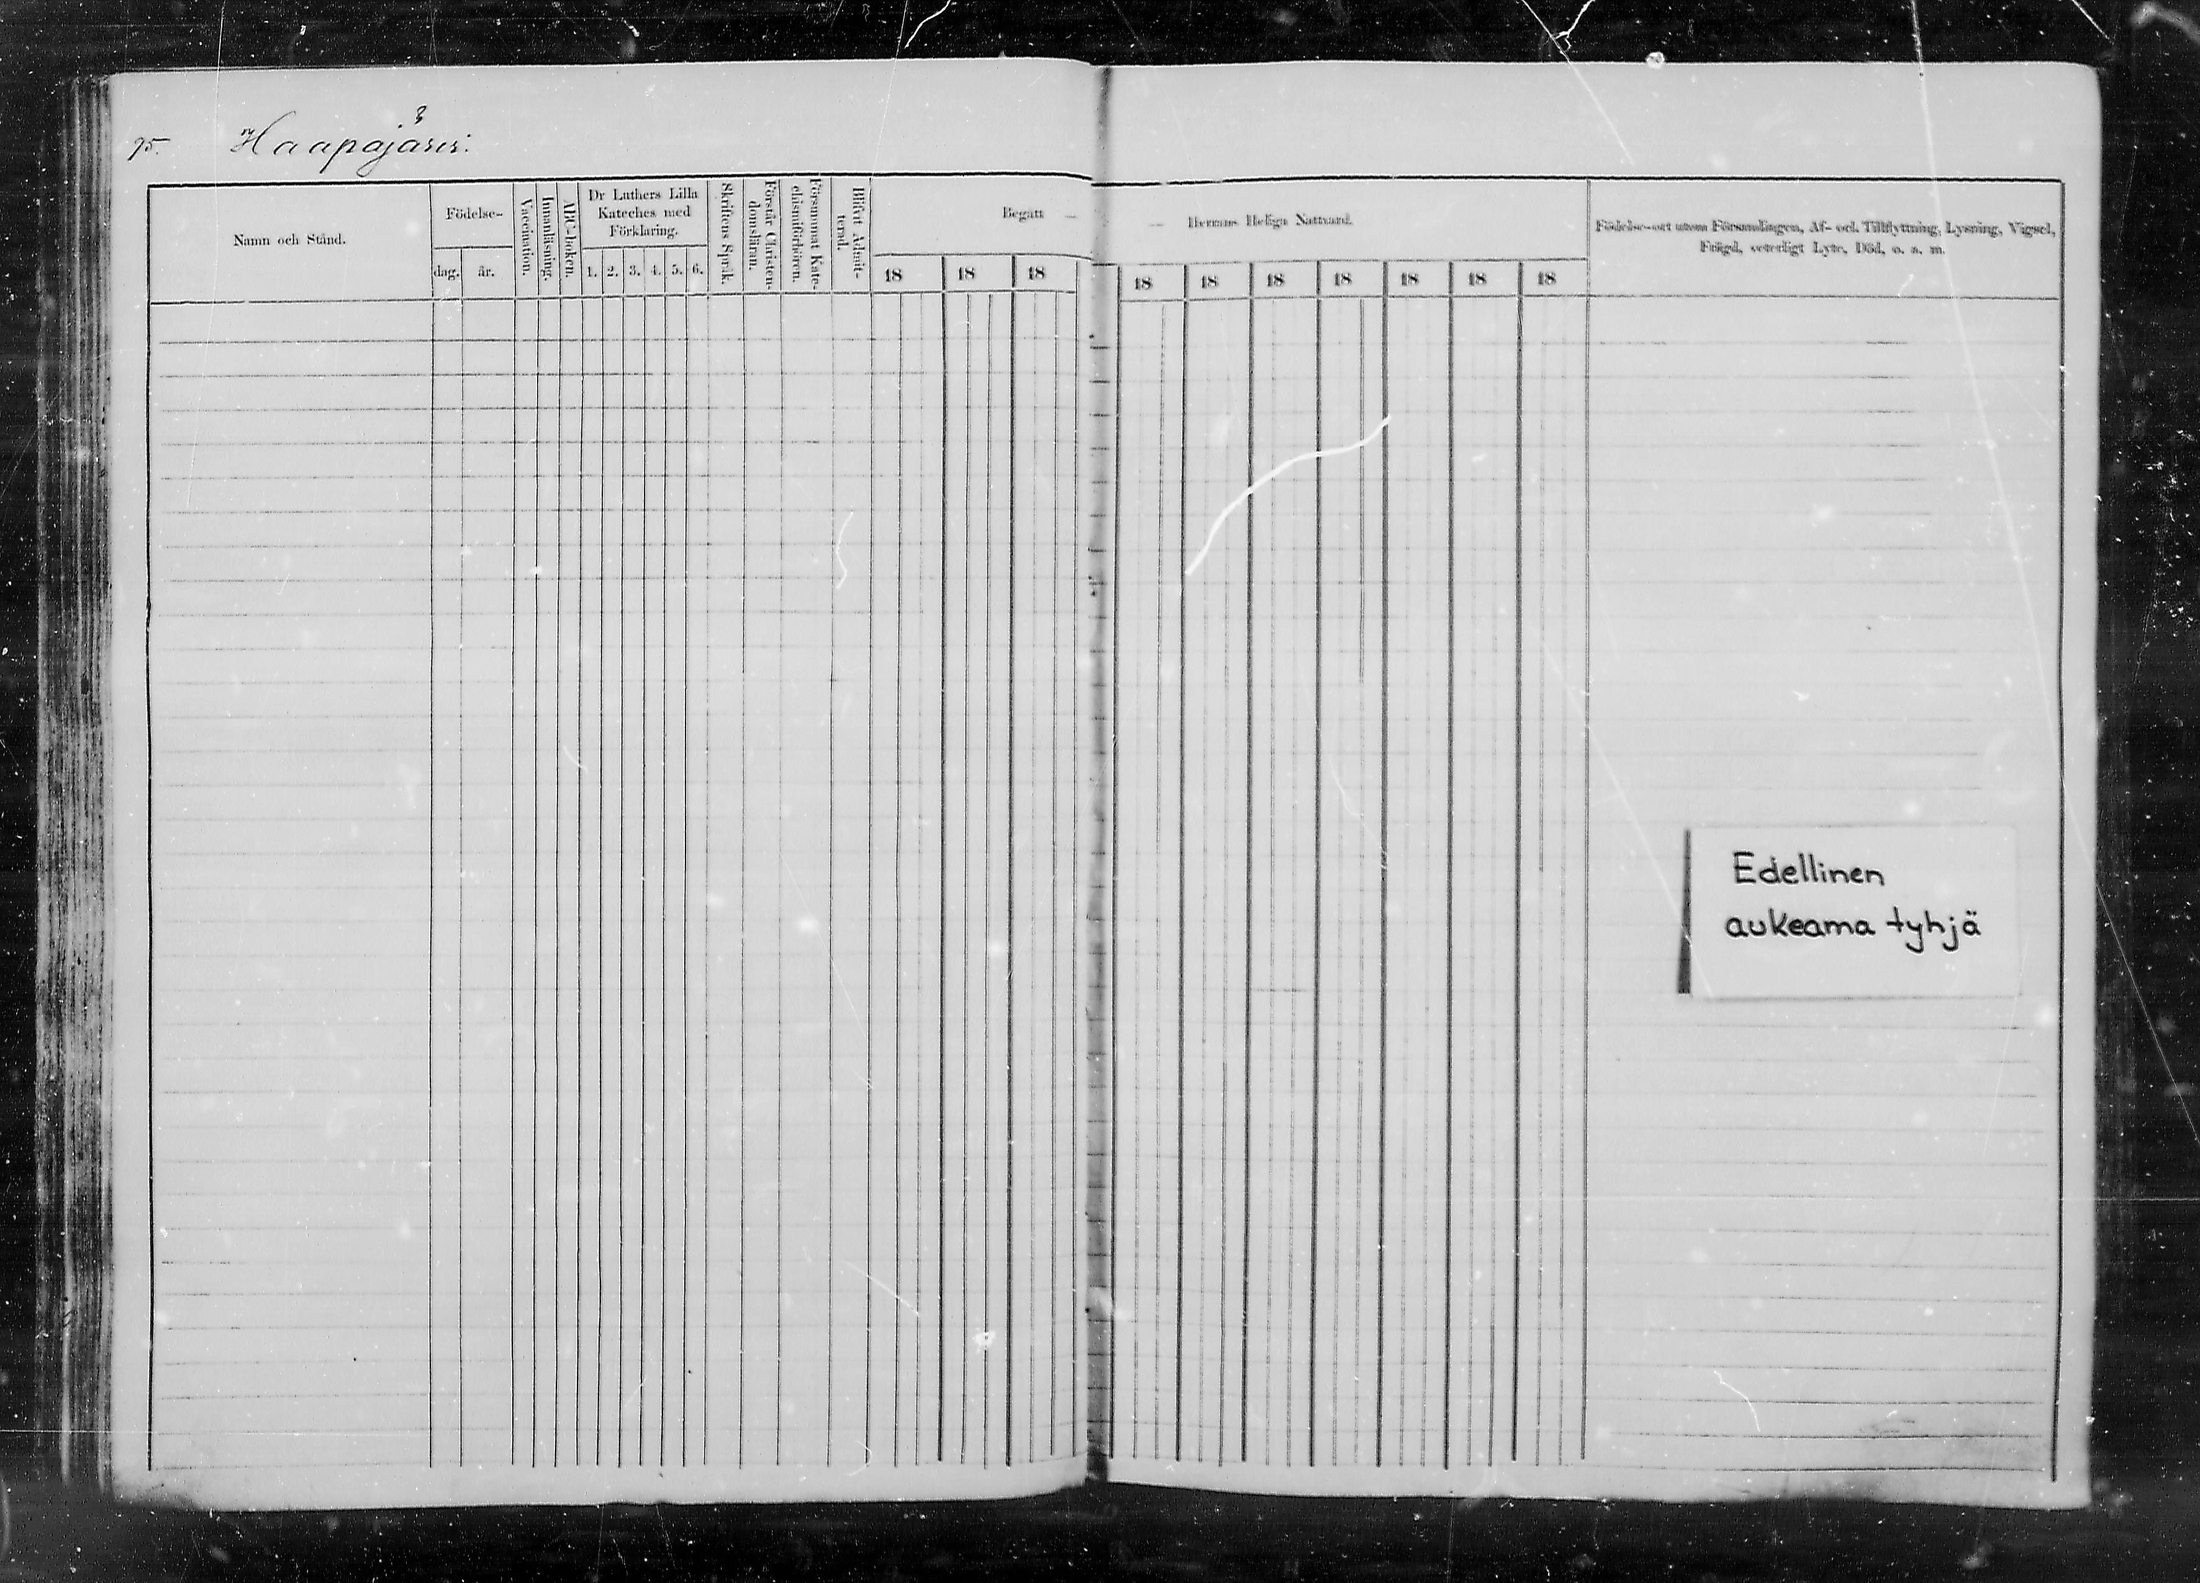 95. Haapajärvi.
Namn och Stånd.
Födelse-
dag.
år.
Vaccination.
Innanläsning.
ABC-boken.
Dr Luthers Lilla
Kateches med
Förklaring.
1. 2. 3. 4. 5. 6.
Skriftens Språk.
Förstår Christen-
domsläran.
Försummat Kate-
chismiförhören.
Blifvit Admit-
terad.
Begått —
18 18 18
— Herrans Heliga Nattvard.
18 18 18 18 18 18 18
Födelse-ort utom Församlingen, Af- och Tillflyttning, Lysning, Vigsel,
Frägd, veterligt Lyte, Död, o. s. m.
Edellinen
aukeama tyhjä